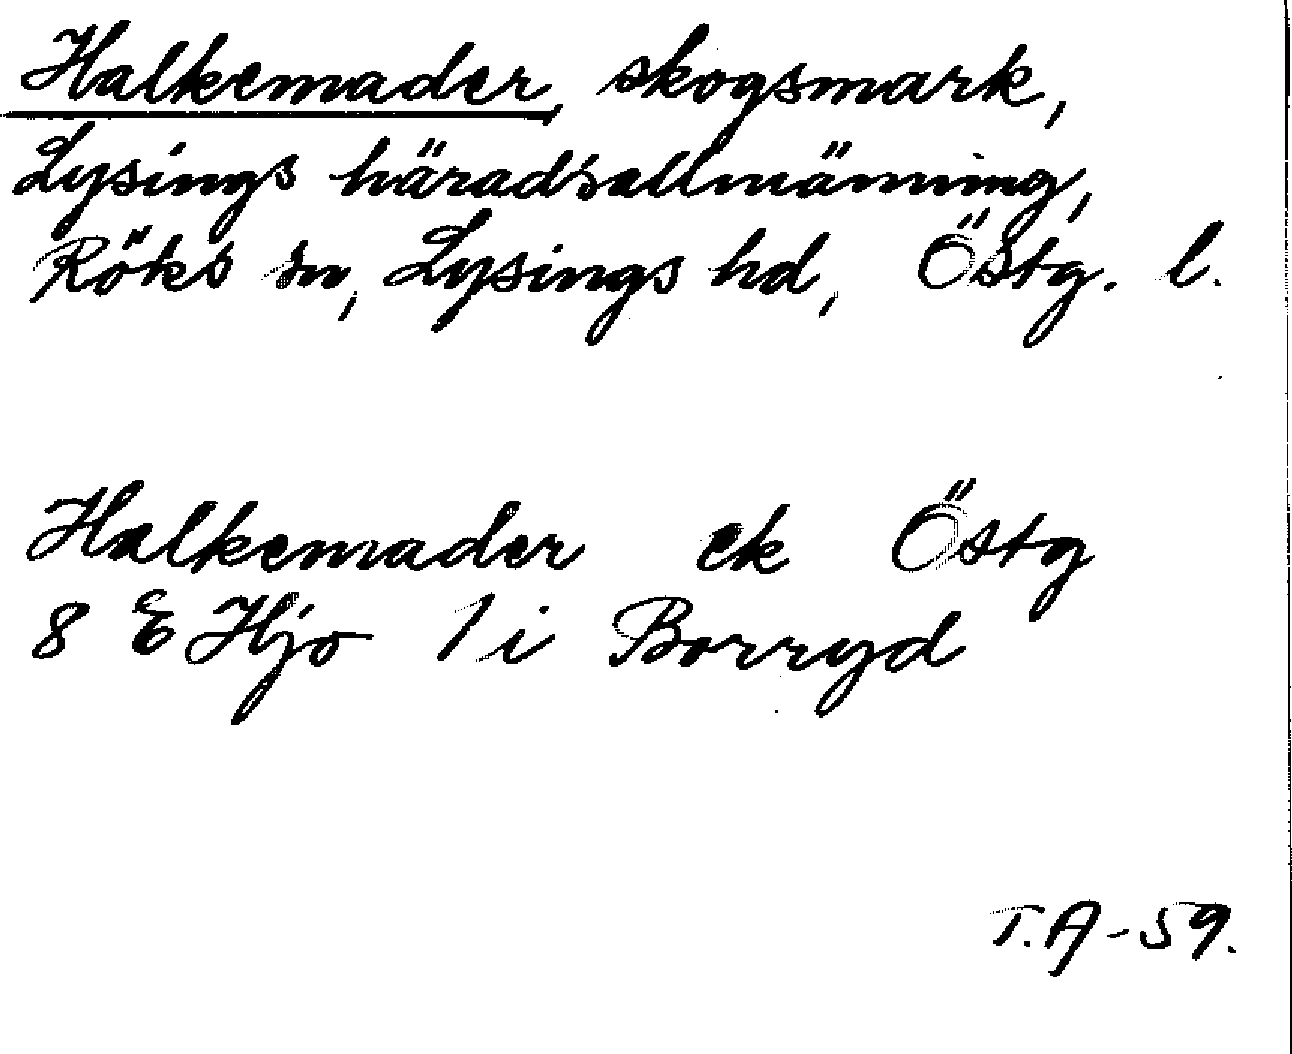 Halkemader, skogsmark,
Lysings häradsallmänning,
Röks sn, Lysings hd, Östg. l.
Halkemader ek Östg
8 E Hjo 1 i Borryd
T.A-59.